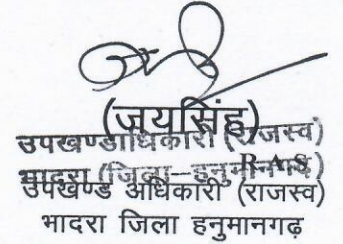 (जयसिंह)
उपखण्डाधिकारी (राजस्व)
RAS
भादरा (जिला-हनुमानगढ)
उपखण्ड अधिकारी (राजस्व)
भादरा जिला हनुमानगढ़